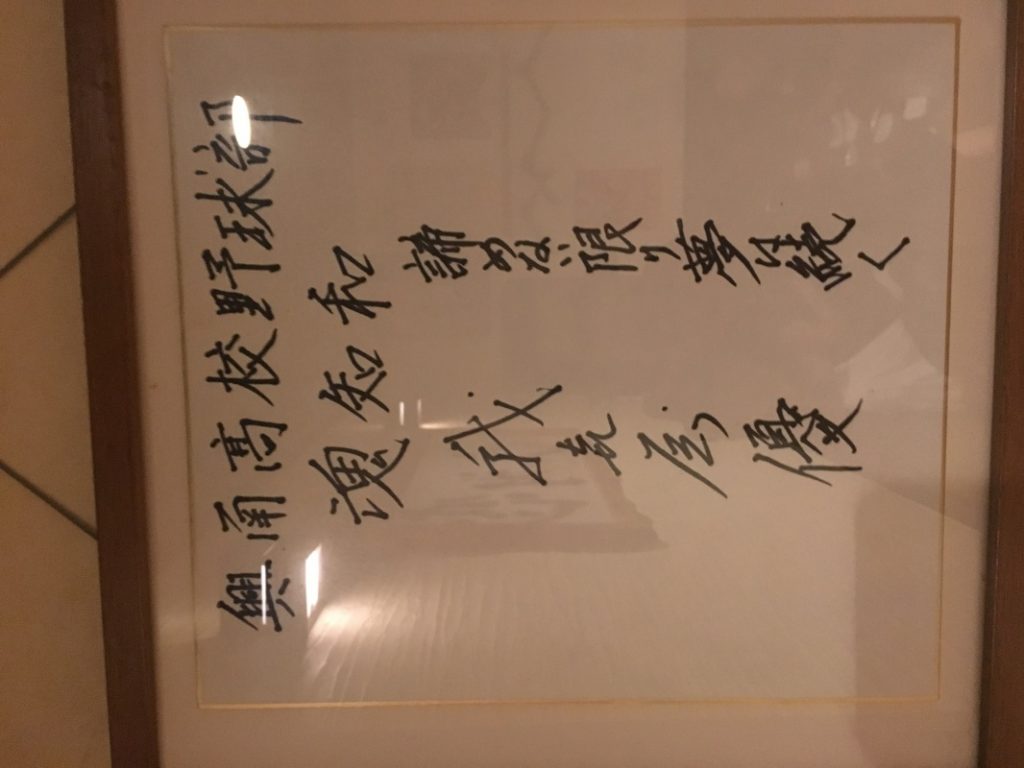 興南高校野球部
魂知和
諦めない限り夢は続く
我喜屋優